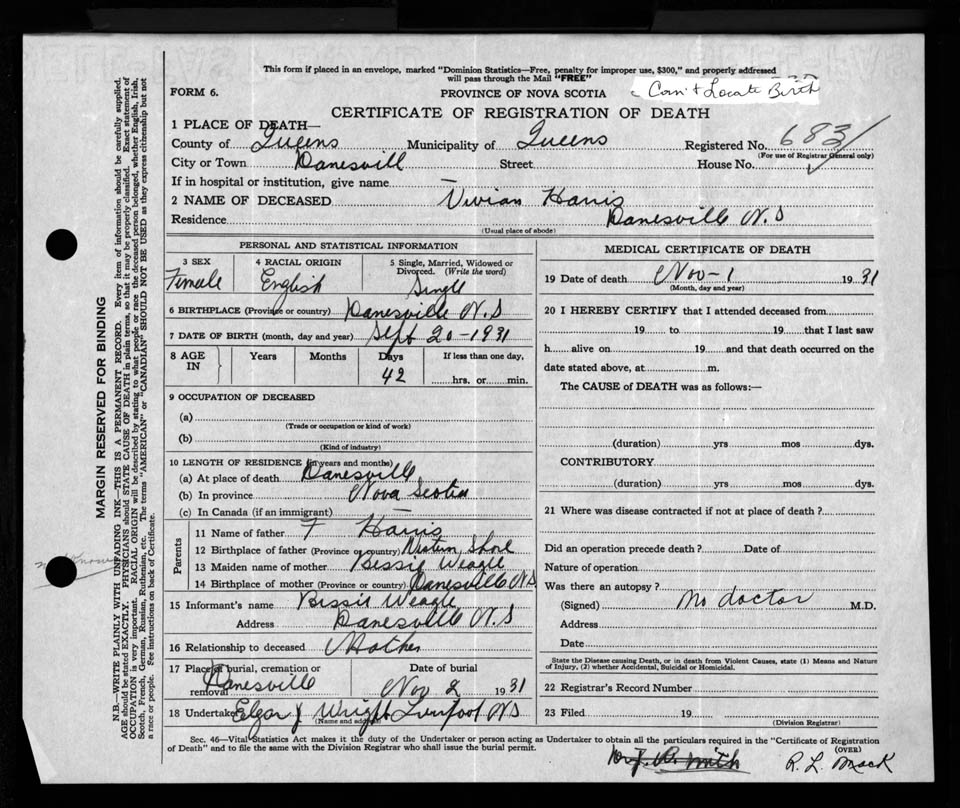 This form if placed in an envelope, marked "Dominion Statistics—Free, penalty for improper use, $300," and properly addressed
will pass through the Mail "FREE"
FORM 6. PROVINCE OF NOVA SCOTIA Can't Locate Birth
CERTIFICATE OF REGISTRATION OF DEATH
1 PLACE OF DEATH—
County of Queens Municipality of Queens Registered No. 683
(For use of Registrar General only)
City or Town Danesvill Street House No.
If in hospital or institution, give name —
2 NAME OF DECEASED Vivian Harris
Residence Danesville N.S
(Usual place of abode)
PERSONAL AND STATISTICAL INFORMATION
3 SEX 4 RACIAL ORIGIN 5 Single, Married, Widowed or
Divorced. (Write the word)
Female English Single
6 BIRTHPLACE (Province or country) Danesville N.S
7 DATE OF BIRTH (month, day and year) Sept 20-1931
8 AGE IN Years Months Days If less than one day,
42 hrs. or min.
9 OCCUPATION OF DECEASED
(a)
(Trade or occupation or kind of work)
(b)
(Kind of industry)
10 LENGTH OF RESIDENCE (in years and months)
(a) At place of death Danesville
(b) In province Nova Scotia
(c) In Canada (if an immigrant)
Parents
11 Name of father F Harris
12 Birthplace of father (Province or country) Western Shore
13 Maiden name of mother Bessie Weagle
14 Birthplace of mother (Province or country) Danesville N.S
15 Informant's name Bessie Weagle
Address Danesville N.S
16 Relationship to deceased Mother
17 Place of burial, cremation or removal Danesville
Date of burial
Nov 2 1931
18 Undertaker Elgar J Wright Liverpool N.S
(Name and address)
MEDICAL CERTIFICATE OF DEATH
19 Date of death Nov-1 1931
(Month, day and year)
20 I HEREBY CERTIFY that I attended deceased from
19 to 19 that I last saw
h alive on 19 and that death occurred on the
date stated above, at m.
The CAUSE of DEATH was as follows:—
(duration) yrs mos dys.
CONTRIBUTORY
(duration) yrs mos dys.
21 Where was disease contracted if not at place of death?
Did an operation precede death? Date of
Nature of operation
Was there an autopsy?
(Signed) No doctor M.D.
Address
Date
State the Disease causing Death, or in death from Violent Causes, state (1) Means and Nature
of Injury, (2) whether Accidental, Suicidal or Homicidal.
22 Registrar's Record Number
23 Filed 19
(Division Registrar)
Sec. 46—Vital Statistics Act makes it the duty of the Undertaker or person acting as Undertaker to obtain all the particulars required in the "Certificate of Registration
of Death" and to file the same with the Division Registrar who shall issue the burial permit.
(OVER)
Smith R. L. Mack
MARGIN RESERVED FOR BINDING
N.B.—WRITE PLAINLY WITH UNFADING INK—THIS IS A PERMANENT RECORD. Every item of information should be carefully supplied.
AGE should be stated EXACTLY. PHYSICIANS should STATE CAUSE OF DEATH in plain terms, so that it may be properly classified. Exact statement of
OCCUPATION is very important. RACIAL ORIGIN will be described by stating to what people or race the deceased person belonged, whether English, Irish,
Scotch, French, German, Russian, Ruthenian, etc. The terms "AMERICAN" or "CANADIAN" SHOULD NOT BE USED as they express citizenship but not
a race or people. See instructions on back of Certificate.